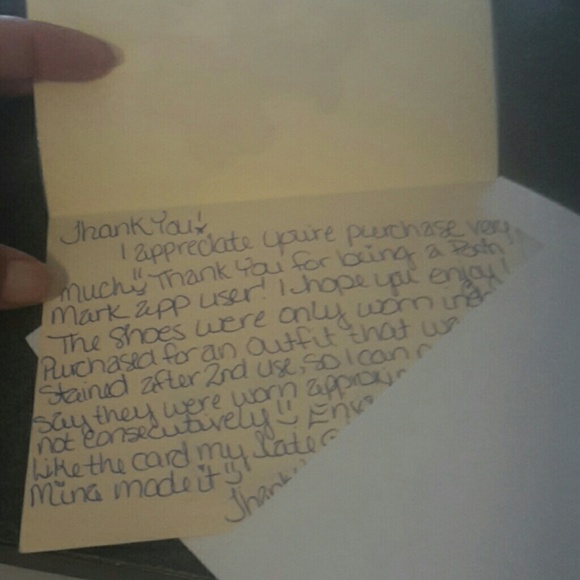 Thank You!
I appreciate you're purchase very
much!! Thank You for being a Posh
Mark app user! I hope you enjoy!
The shoes were only worn
Purchased for an outfit that
Stained after 2nd use, so I can
say they were worn
not consecutively!!
Like the card my late
Mina made it
Thank